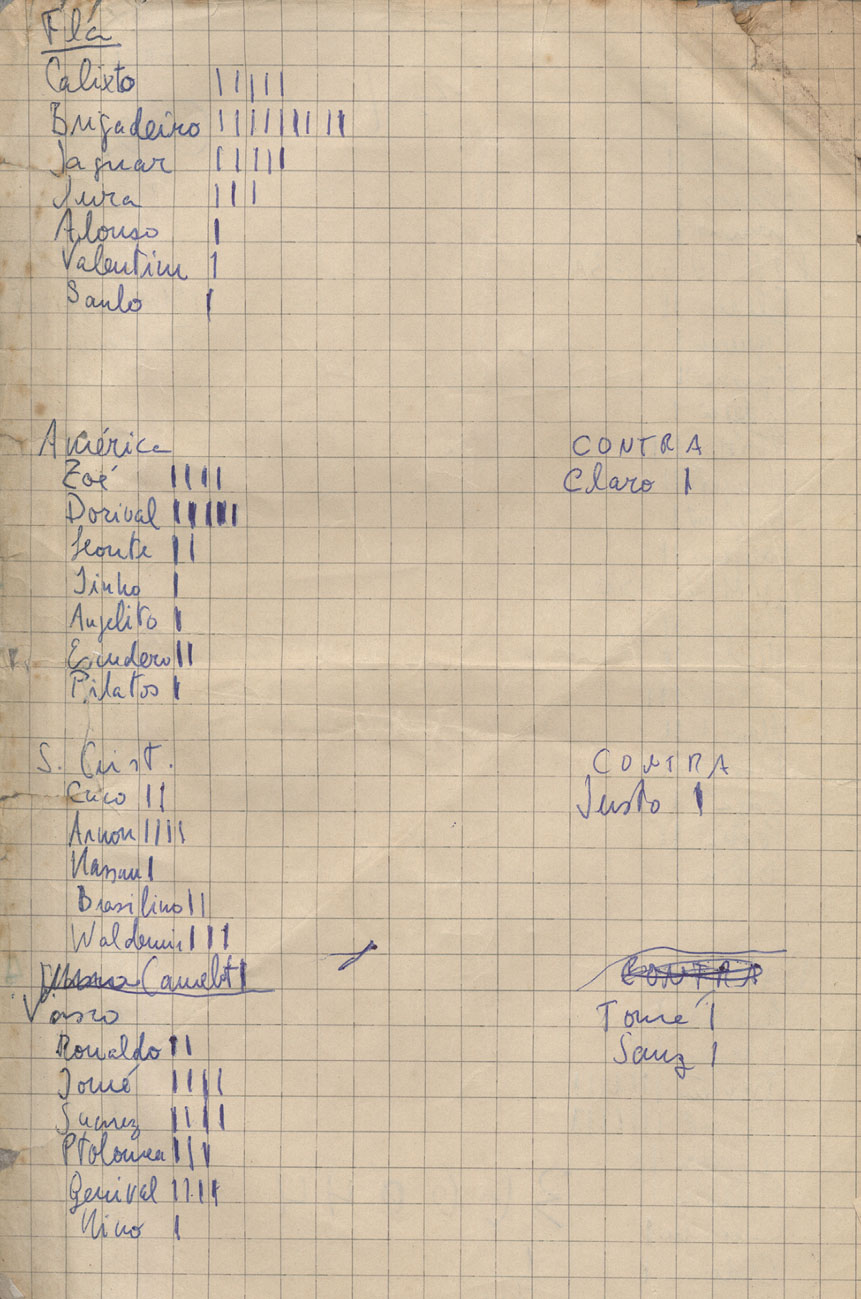 Flá
Calixto | | | | |
Brigadeiro | | | | | | | | |
Jaguar | | | | |
Jura | | |
Alonso |
Valentim |
Saulo |
América
CONTRA
Zoé | | | |
Claro |
Dorival | | | | |
| |
Tinho |
Angelito |
Escudero | |
Pilatos |
S. Crist.
CONTRA
Cuco | |
Justo |
Arnon | | | |
Nassau |
Brasilino | |
Waldemir | | |
Camelot |
CONTRA
Vasco
Tomé |
Ronaldo | |
Sanz |
Tomé | | | |
Suarez | | | |
Ptolomea | | |
Genival | | | |
Nino |